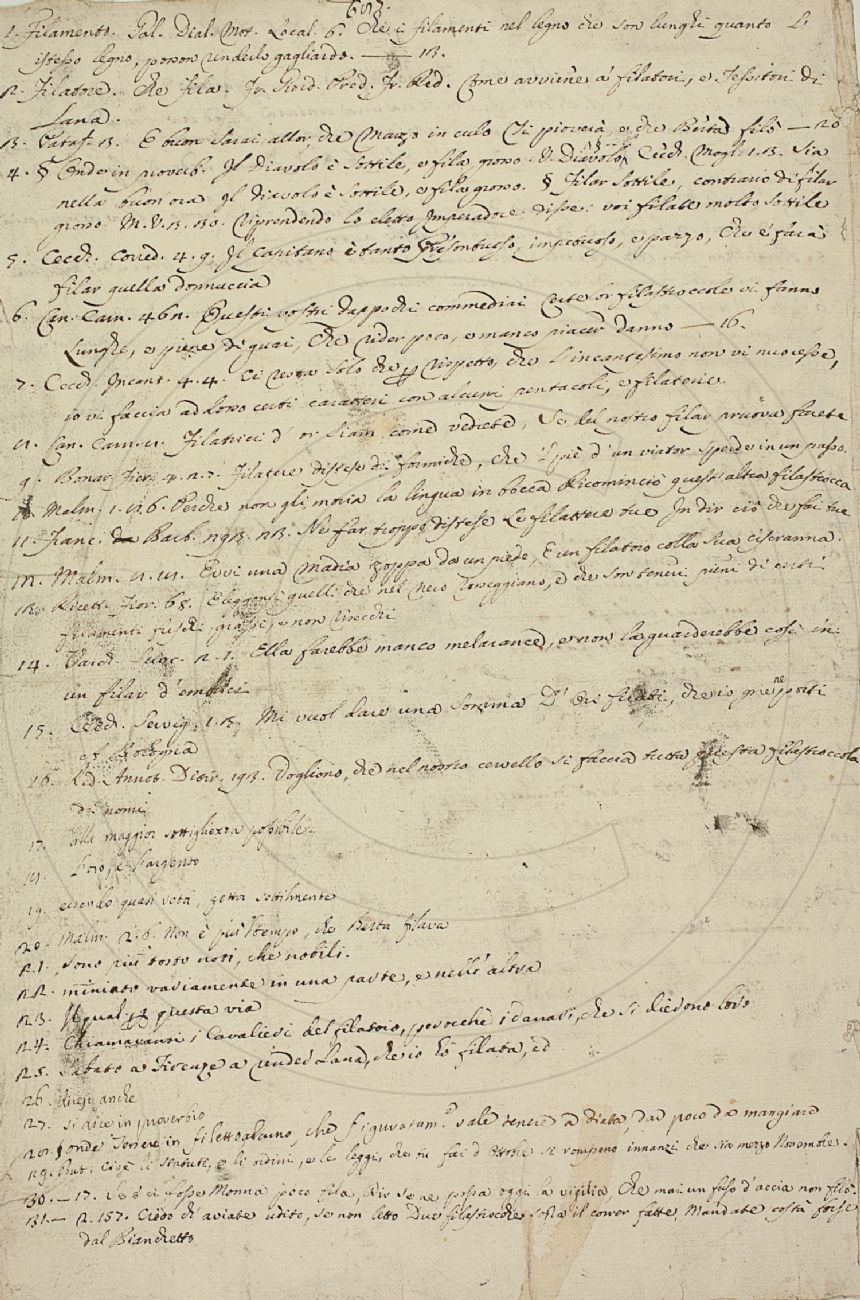 1. Filamento. Gal. Dial. Mot. Local. 6. Che i filamenti nel legno che son lunghi quanto l'
istesso legno, posson renderlo gagliardo. — 13.
2. Filatore. Che fila. Fr. Giord. Pred. Fr. Red. Come avviene a' filatori, e Tessitori di
Lana.
3. Pataff. 3. E buon sarai, allor, che Marzo in culo Ti pioverà, e che Berta filò — 20
4. § Onde in proverb. Il Diavolo è sottile, e fila grosso. V. Diavolo. Cecch. Mogl. 1. 3. Sia
nella buon ora Il diavolo è sottile, e fila grosso. § Filar sottile, contrario di filar
grosso M. V. 3. Riprendendo lo eletto Imperadore disse: voi filate molto sottile
5. Cecch. Cored. 4. 9. Il Capitano è tanto presontuoso, impetuoso, e pazzo, che e' farà
filar quella donnuccia
6. Can. Carn. 46 Questi vostri dappochi commediai Certe lor filastroccole vi fanno
Lunghe, e piene di guai, Che rider poco, e manco piacer danno — 16.
7. Cecch. Incant. 4. 4. Ci resta solo che rispetto, che l'incantesimo non vi nuocesse,
io vi faccia addosso certi caratteri con alcuni pentacoli, e filaterie.
Can. Carn. Filatrici d'or siam, come vedete, Se del nostro filar pruova farete
9. Bonar. Fier. 4. 2. 7. Filatere distese di formiche, che 'l piè d'un viator sperde in un passo.
10. Malm. 1. 6. Perchè non gli moria la lingua in bocca Ricominciò quest'altra filastrocca
11. Franc. Barb. Ne far troppo distese Le filattere tue In dir ciò che fai tue
12. Malm. Evvi una madia zoppa da un piede, E un filatoio colla sua ciscranna.
13. Ricett. Fior. 68. E leggonsi quelli che nel nero rosseggiano, e che son teneri pieni di certi
filamenti freschi grassi, e non secchi
14. Varch. Suoc. 2. 1. Ella farebbe manco melarance, e non la guarderebbe così in
un filar d'embrici
15. Cecch. Servig. 1. 3. Mi vuol dare una somma D'ori filati, che io gne ne porti
a Bologna
16. Red. Annot. Ditir. Vogliono, che nel nostro cervello si faccia tutta questa filastroccola
di nomi
17. alla maggior sottigliezza possibile
l'oro, e l'argento
19. essendo quasi vota, getta sottilmente
20. Malm. 2. 6. Non è più tempo, che Berta filava
21. sono più tosto noti, che nobili.
22. miniato variamente in una parte, e nell'altra
23. questa via
24. Chiamavansi i Cavalieri del filatoio, perocchè i danari, che si diedono loro
25. Sabato a Firenze a vender Lana, che io ho filata, ed
26. dicesi anche
27. si dice in proverbio
28. onde Tenere in filetto alcuno, che figuratam.e vale tenere a dieta, dar poco da mangiare
29. But. Cioè li statuti, e li ordini, e le leggi, che tu fai d'Ottobre si rompeno innanzi che sia mezzo Novembre.
30. — 17. Se e' ci fosse Monna poco fila, Dir se ne possa oggi la vigilia, Che mai un fuso d'accia non filò.
31. — 2. 157. Credo ch'aviate udito, se non letto Due filastrocche sopra il correr fatte, Mandate costà forse
dal Bianchetto